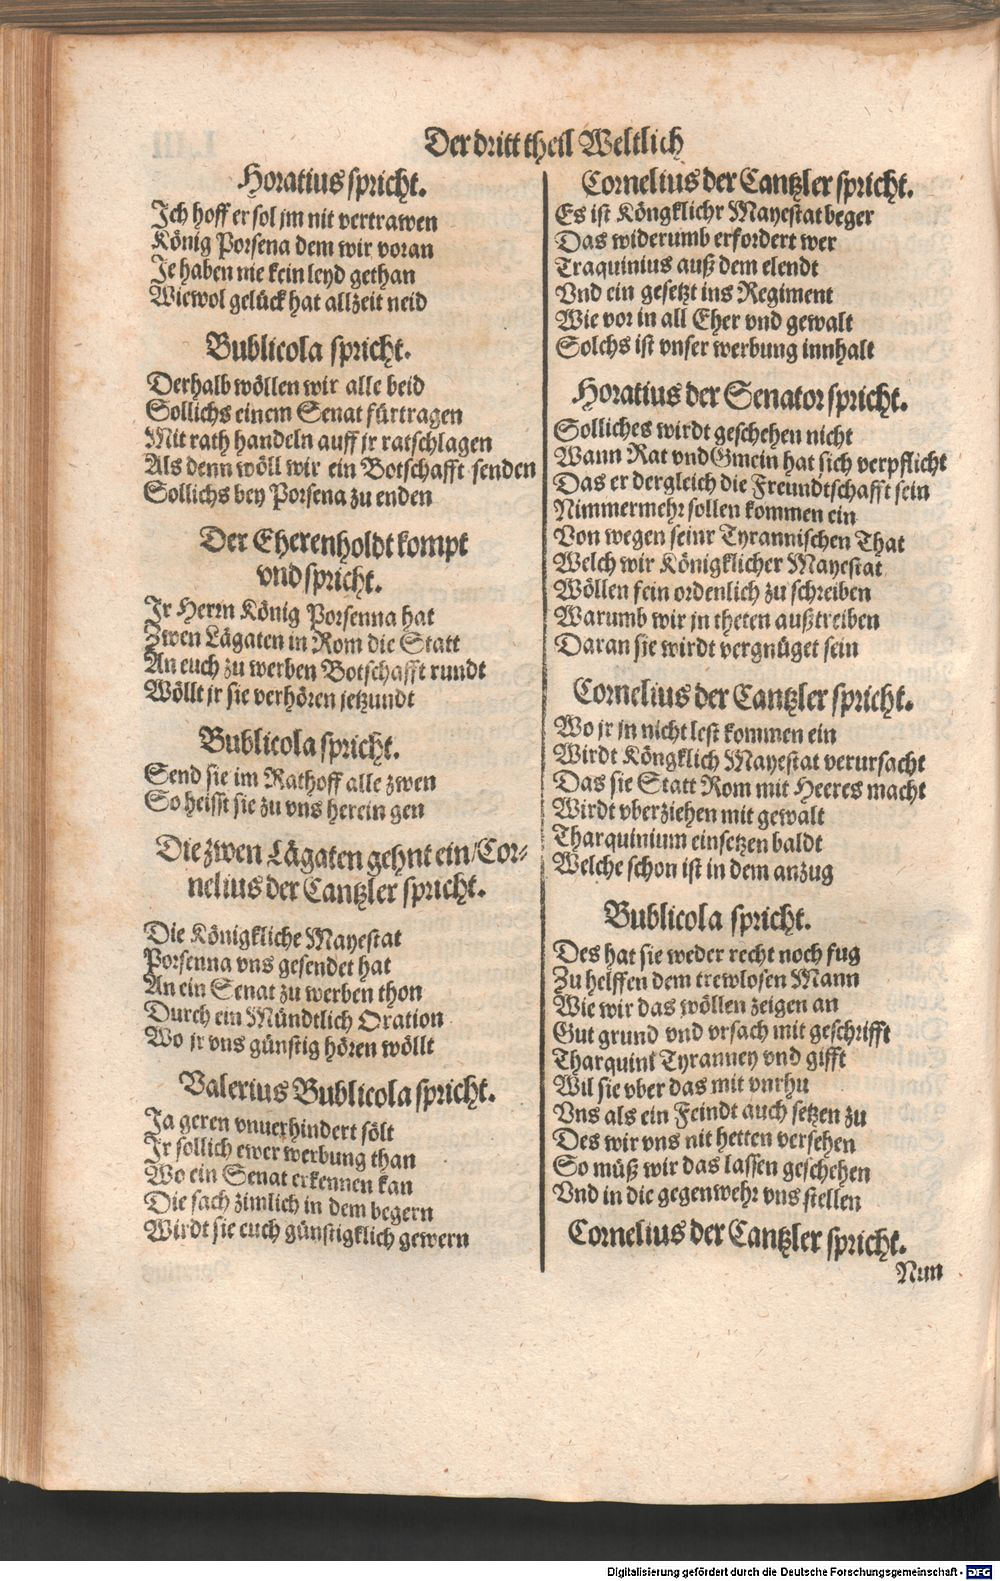 Der dritt theil Weltlich
Horatius spricht.
Ich hoff er sol jm nit vertrawen
König Porsena dem wir voran
Je haben nie kein leyd gethan
Wiewol gelück hat allzeit neid
Bublicola spricht.
Derhalb wöllen wir alle beid
Sollichs einem Senat fürtragen
Mit rath handeln auff jr ratschlagen
Als denn wöll wir ein Botschafft senden
Sollichs bey Porsena zu enden
Der Eherenholdt kompt
vnd spricht.
Ir Herrn König Porsenna hat
Zwen Lägaten in Rom die Statt
An euch zu werben Botschafft rundt
Wöllt jr sie verhören jetzundt
Bublicola spricht.
Send sie im Rathoff alle zwen
So heisst sie zu vns herein gen
Die zwen Lägaten gehnt ein/Cor-
nelius der Cantzler spricht.
Die Königkliche Mayestat
Porsenna vns gesendet hat
An ein Senat zu werben thon
Durch ein Mündtlich Oration
Wo jr vns günstig hören wöllt
Valerius Bublicola spricht.
Ja geren vnuerhindert sölt
Ir sollich ewer werbung than
Wo ein Senat erkennen kan
Die sach zimlich in dem begern
Wirdt sie euch günstigklich gewern
Cornelius der Cantzler spricht.
Es ist Köngklichr Mayestat beger
Das widerumb erfordert wer
Traquinius auß dem elendt
Vnd ein gesetzt ins Regiment
Wie vor in all Eher vnd gewalt
Solchs ist vnser werbung innhalt
Horatius der Senator spricht.
Solliches wirdt geschehen nicht
Wann Rat vnd Gmein hat sich verpflicht
Das er dergleich die Freundtschafft sein
Nimmermehr sollen kommen ein
Von wegen seinr Tyrannischen That
Welch wir Königklicher Mayestat
Wöllen fein ordenlich zu schreiben
Warumb wir jn theten außtreiben
Daran sie wirdt vergnüget sein
Cornelius der Cantzler spricht.
Wo jr jn nicht lest kommen ein
Wirdt Köngklich Mayestat verursacht
Das sie Statt Rom mit Heeres macht
Wirdt vberziehen mit gewalt
Tharquinium einsetzen baldt
Welche schon ist in dem anzug
Bublicola spricht.
Des hat sie weder recht noch fug
Zu helffen dem trewlosen Mann
Wie wir das wöllen zeigen an
Gut grund vnd vrsach mit geschrifft
Tharquini Tyranney vnd gifft
Wil sie vber das mit vnrhu
Vns als ein Feindt auch setzen zu
Des wir vns nit hetten versehen
So müß wir das lassen geschehen
Vnd in die gegenwehr vns stellen
Cornelius der Cantzler spricht.
Nun
Digitalisierung gefördert durch die Deutsche Forschungsgemeinschaft - DFG